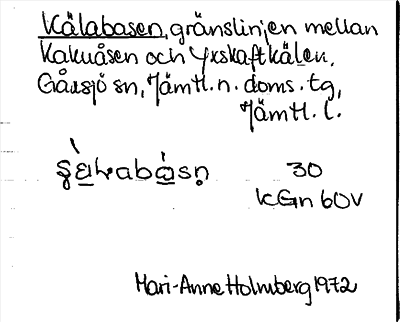 Kälabasen, gränslinjen mellan
Kakuåsen och Yxskaftkälen,
Gåxsjö sn, Jämtl. n. doms. tg,
Jämtl. l.
30
KGn 60V
Mari-Anne Holmberg 1972